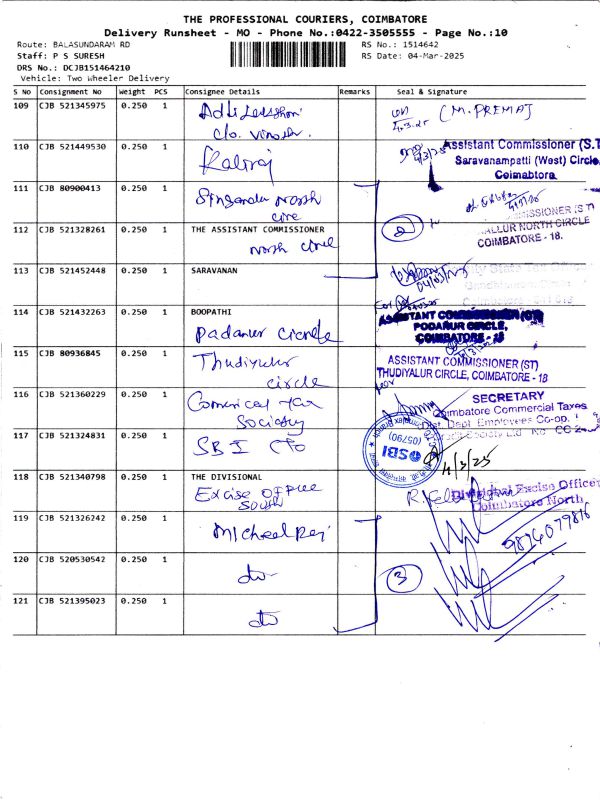 THE PROFESSIONAL COURIERS, COIMBATORE
Delivery Runsheet - MO - Phone No.:0422-3505555 - Page No.:10
Route: BALASUNDARAM RD
RS No.: 1514642
Staff: P S SURESH
RS Date: 04-Mar-2025
DRS No.: DCJB151464210
Vehicle: Two Wheeler Delivery
S No Consignment No Weight PCS Consignee Details Remarks Seal & Signature
109 CJB 521345975 0.250 1
c/o. Vinoth.
4.3.25 (M. PREMA)
110 CJB 521449530 0.250 1 Kaliraj
4/3/25 Assistant Commissioner (S.T
Saravanampatti (West) Circle,
Coimabtora
111 CJB 80900413 0.250 1 Singanalur North
circle
112 CJB 521328261 0.250 1 THE ASSISTANT COMMISSIONER
North circle
2
MISSIONER (ST)
ALLUR NORTH CIRCLE
COIMBATORE - 18.
113 CJB 521452448 0.250 1 SARAVANAN
04/03/25
114 CJB 521432263 0.250 1 BOOPATHI
Padanur circle
ASSISTANT COMMISSIONER (ST)
PODANUR CIRCLE,
COIMBATORE - 18
115 CJB 80936845 0.250 1 Thudiyalur
circle
ASSISTANT COMMISSIONER (ST)
THUDIYALUR CIRCLE, COIMBATORE - 18
116 CJB 521360229 0.250 1 Comerical Tax
Society
SECRETARY
Coimbatore Commercial Taxes
Dist. Dept. Employees Co-op.
117 CJB 521324831 0.250 1 SBI CTO
SBI
(05790)
4/3/25
118 CJB 521340798 0.250 1 THE DIVISIONAL
Excise Office
South
Divisional Excise Officer
Coimbatore North
119 CJB 521326242 0.250 1 Michealraj
9894079816
120 CJB 520530542 0.250 1 do
3
121 CJB 521395023 0.250 1 do